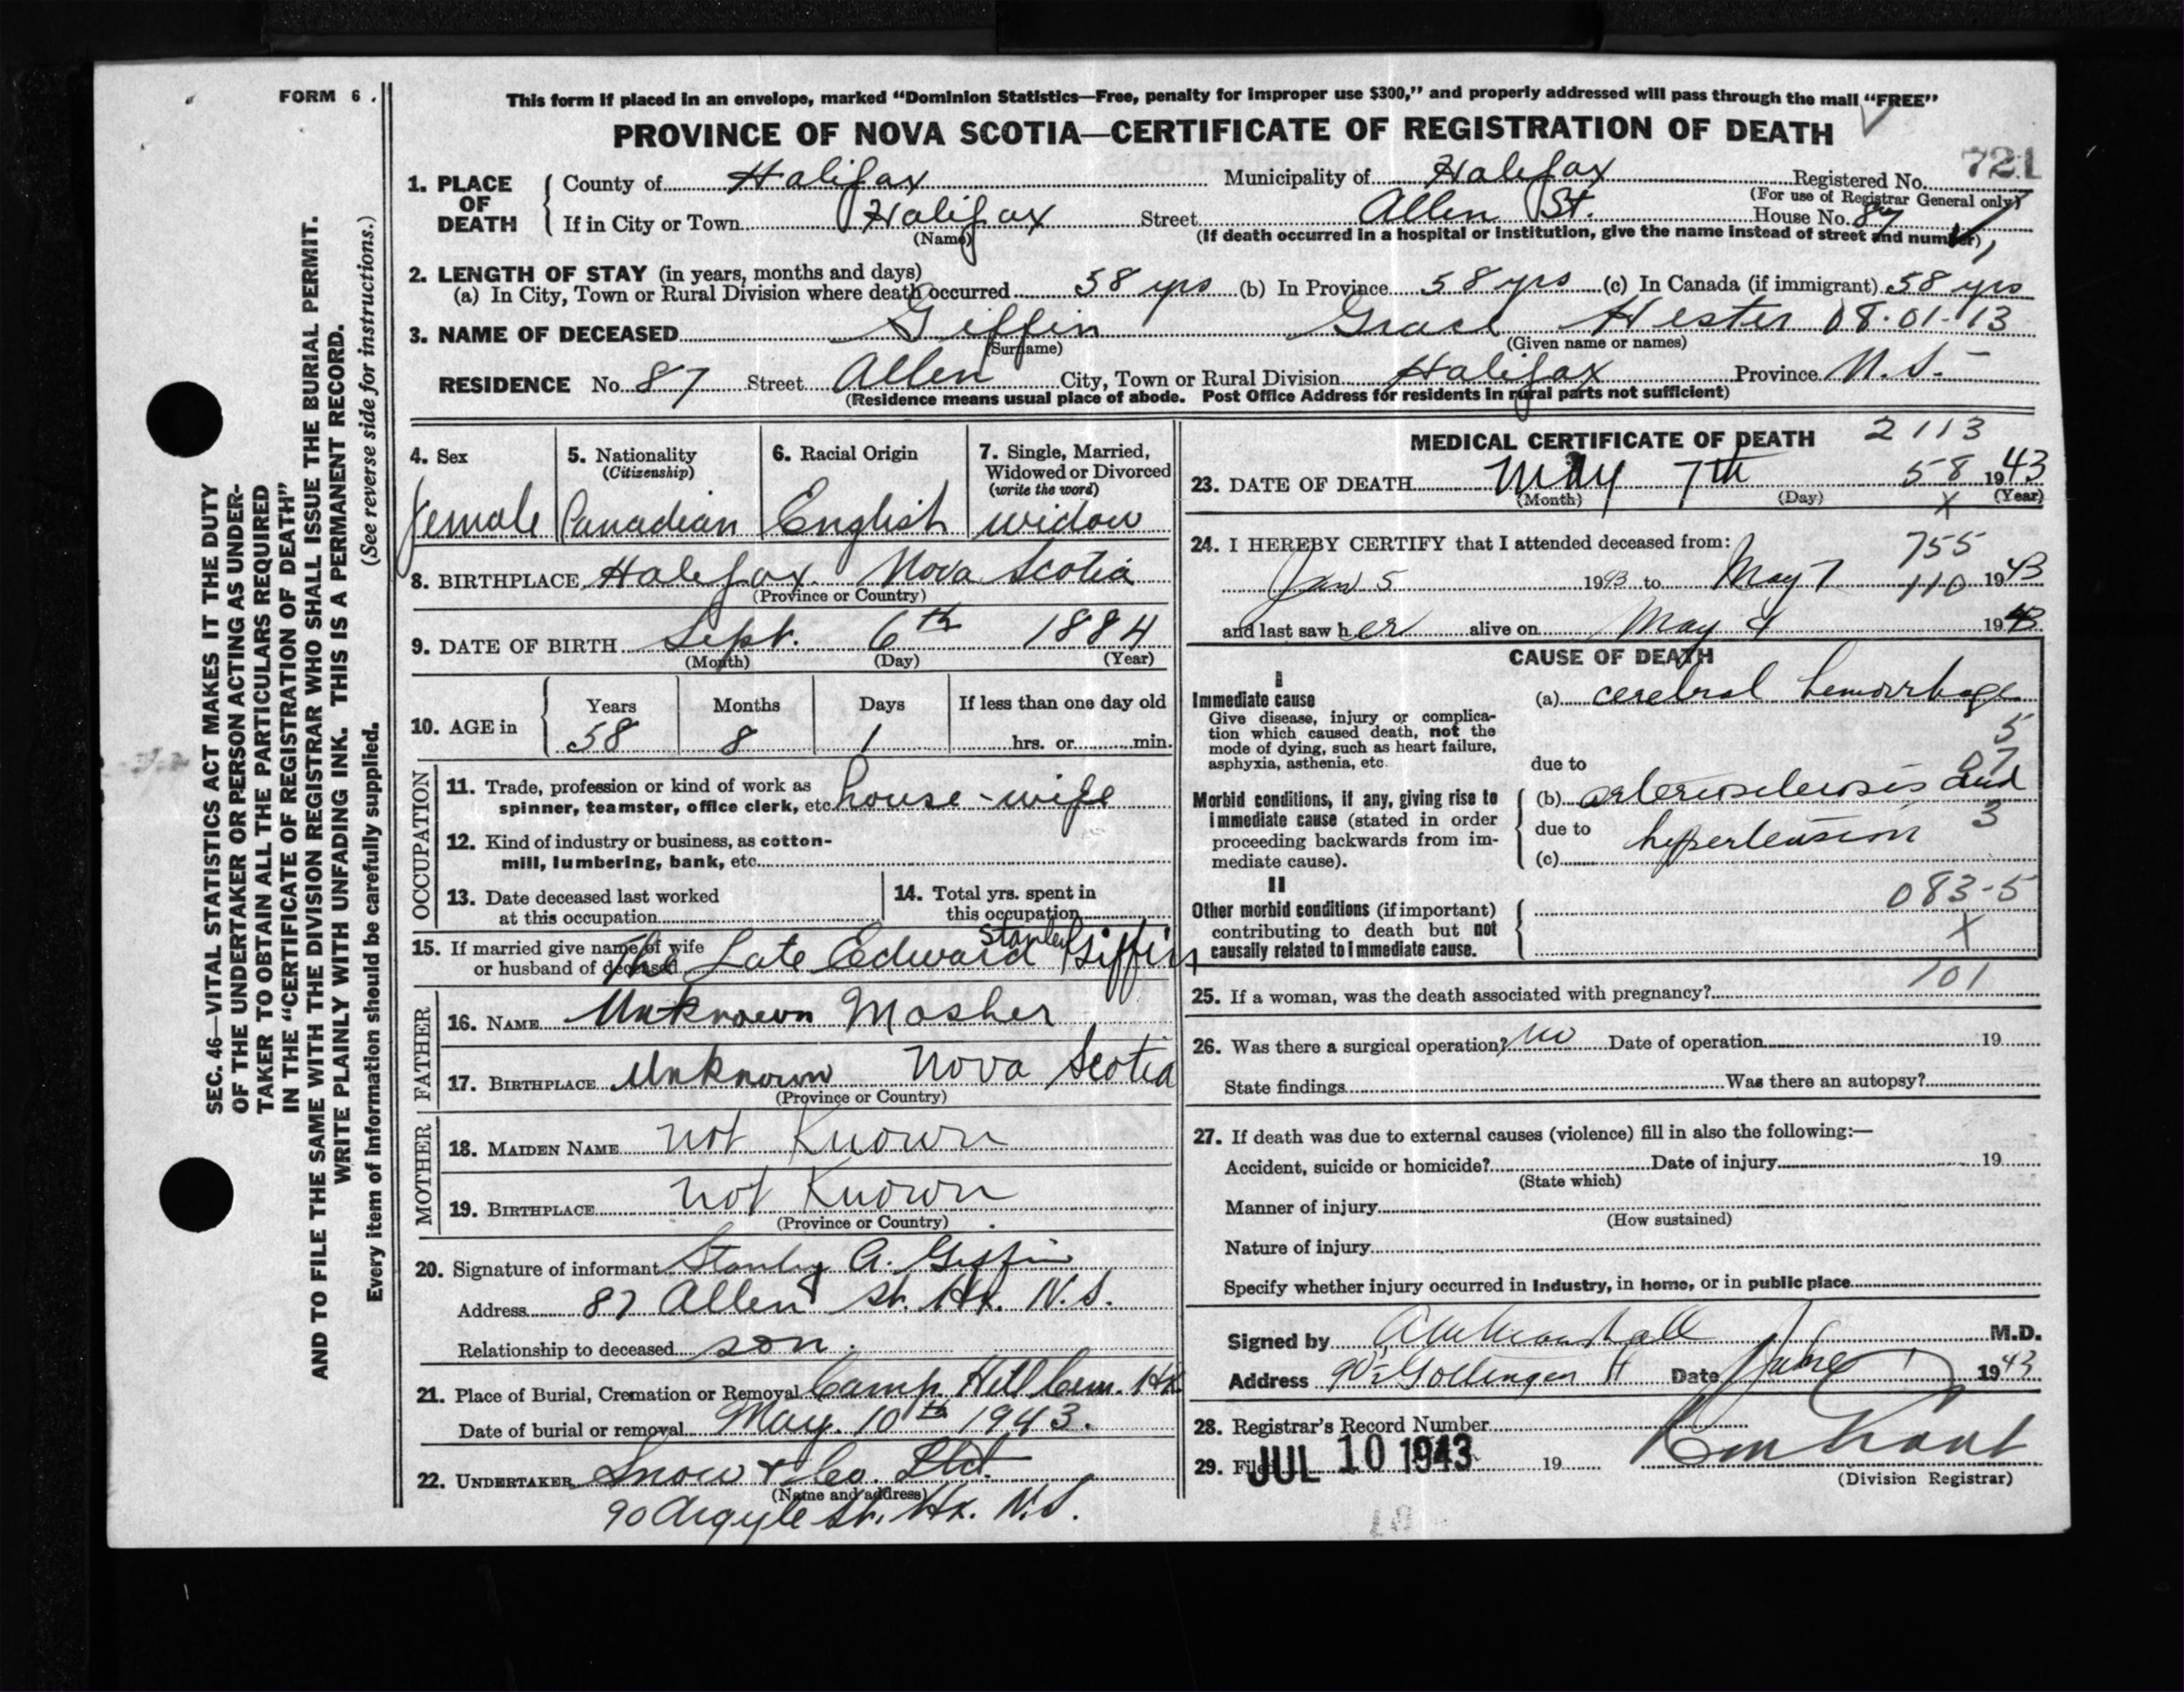 FORM 6.
This form if placed in an envelope, marked "Dominion Statistics—Free, penalty for improper use $300," and properly addressed will pass through the mail "FREE"
PROVINCE OF NOVA SCOTIA—CERTIFICATE OF REGISTRATION OF DEATH
721
1. PLACE OF DEATH
County of Halifax Municipality of Halifax Registered No.
(For use of Registrar General only)
If in City or Town Halifax Street Allen St. House No. 87
(Name) (If death occurred in a hospital or institution, give the name instead of street and number)
2. LENGTH OF STAY (in years, months and days)
(a) In City, Town or Rural Division where death occurred 58 yrs (b) In Province 58 yrs (c) In Canada (if immigrant) 58 yrs
3. NAME OF DECEASED Giffin Grace Hester 08.01.13
(Surname) (Given name or names)
RESIDENCE No. 87 Street Allen City, Town or Rural Division Halifax Province N.S.
(Residence means usual place of abode. Post Office Address for residents in rural parts not sufficient)
4. Sex
Female
5. Nationality
(Citizenship)
Canadian
6. Racial Origin
English
7. Single, Married,
Widowed or Divorced
(write the word)
widow
8. BIRTHPLACE Halifax Nova Scotia
(Province or Country)
9. DATE OF BIRTH Sept. 6th 1884
(Month) (Day) (Year)
10. AGE in
Years Months Days If less than one day old
58 8 1 hrs. or min.
OCCUPATION
11. Trade, profession or kind of work as
spinner, teamster, office clerk, etc. house-wife
12. Kind of industry or business, as cotton-
mill, lumbering, bank, etc.
13. Date deceased last worked
at this occupation
14. Total yrs. spent in
this occupation
15. If married give name of wife
or husband of deceased The Late Edward Stanley Giffin
FATHER
16. NAME Unknown Mosher
17. BIRTHPLACE Unknown Nova Scotia
(Province or Country)
MOTHER
18. MAIDEN NAME not Known
19. BIRTHPLACE not Known
(Province or Country)
20. Signature of informant Stanley A. Giffin
Address 87 Allen St. Hx. N.S.
Relationship to deceased son.
21. Place of Burial, Cremation or Removal Camp Hill Cem. Hx
Date of burial or removal May. 10th 1943.
22. UNDERTAKER Snow & Co. Ltd.
(Name and address)
90 Argyle St. Hx. N.S.
MEDICAL CERTIFICATE OF DEATH 2113
23. DATE OF DEATH May 7th 58 1943
(Month) (Day) X (Year)
24. I HEREBY CERTIFY that I attended deceased from: 755
Jan 5 1943 to May 7 110 1943
and last saw her alive on May 4 1943
CAUSE OF DEATH
I
Immediate cause
Give disease, injury or complica-
tion which caused death, not the
mode of dying, such as heart failure,
asphyxia, asthenia, etc.
(a) cerebral hemorrhage
5
07
due to
Morbid conditions, if any, giving rise to
immediate cause (stated in order
proceeding backwards from im-
mediate cause).
(b) arteriosclerosis and
due to 3
hypertension
(c)
II
Other morbid conditions (if important)
contributing to death but not
causally related to immediate cause.
083-5
X
101
25. If a woman, was the death associated with pregnancy?
26. Was there a surgical operation? no Date of operation 19
State findings Was there an autopsy?
27. If death was due to external causes (violence) fill in also the following:—
Accident, suicide or homicide? Date of injury 19
(State which)
Manner of injury
(How sustained)
Nature of injury
Specify whether injury occurred in industry, in home, or in public place
Signed by M.D.
Address Gottingen St Date June 1 1943
28. Registrar's Record Number
29. Filed JUL 10 1943 19
(Division Registrar)
SEC. 46—VITAL STATISTICS ACT MAKES IT THE DUTY
OF THE UNDERTAKER OR PERSON ACTING AS UNDER-
TAKER TO OBTAIN ALL THE PARTICULARS REQUIRED
IN THE "CERTIFICATE OF REGISTRATION OF DEATH"
AND TO FILE THE SAME WITH THE DIVISION REGISTRAR WHO SHALL ISSUE THE BURIAL PERMIT.
WRITE PLAINLY WITH UNFADING INK. THIS IS A PERMANENT RECORD.
Every item of information should be carefully supplied. (See reverse side for instructions.)